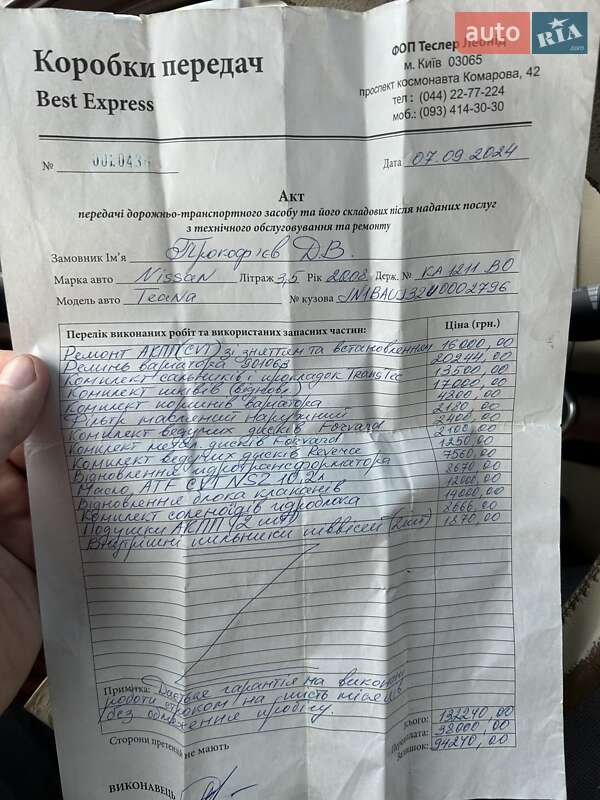 auto RIA.com
Коробки передач
Best Express
ФОП Теслер Леонід
м. Київ 03065
проспект космонавта Комарова, 42
тел : (044) 22-77-224
моб.: (093) 414-30-30
№
Дата 07.09.2024
Акт
передачі дорожньо-транспортного засобу та його складових після наданих послуг
з технічного обслуговування та ремонту
Замовник Ім'я Прокоф'єв Д.В.
Марка авто Nissan Літраж 3,5 Рік 2008 Держ. № КА 1211 ВО
Модель авто Teana № кузова
Перелік виконаних робіт та використаних запасних частин: Ціна (грн.)
Ремонт АКПП (CVT) зі зняттям та встановленням 16000,00
Ремінь варіатора 901063 20244,00
Комплект сальників і прокладок Transtec 13500,00
Комплект шківів 17000,00
Комплект поршнів варіатора 4200,00
Фільтр масляний наружний
Комплект ведучих дисків Forvard
Комплект метал. дисків Forvard 2100,00
Комплект ведучих дисків Reverce 1250,00
Відновлення гідротрансформатора 7560,00
Масло ATF CVT NS2 10.2л 2670,00
Відновлення блока клапанів 12000,00
Комплект соленоїдів гідроблока 14000,00
Подушки АКПП (2 шт) 2666,00
Внутрішні пильники (2шт) 1270,00
Примітка: Дається гарантія на виконані
роботи строком на шість місяців
без обмеження пробігу.
Всього: 132240,00
38000,00
Залишок: 94240,00
Сторони претензій не мають
ВИКОНАВЕЦЬ